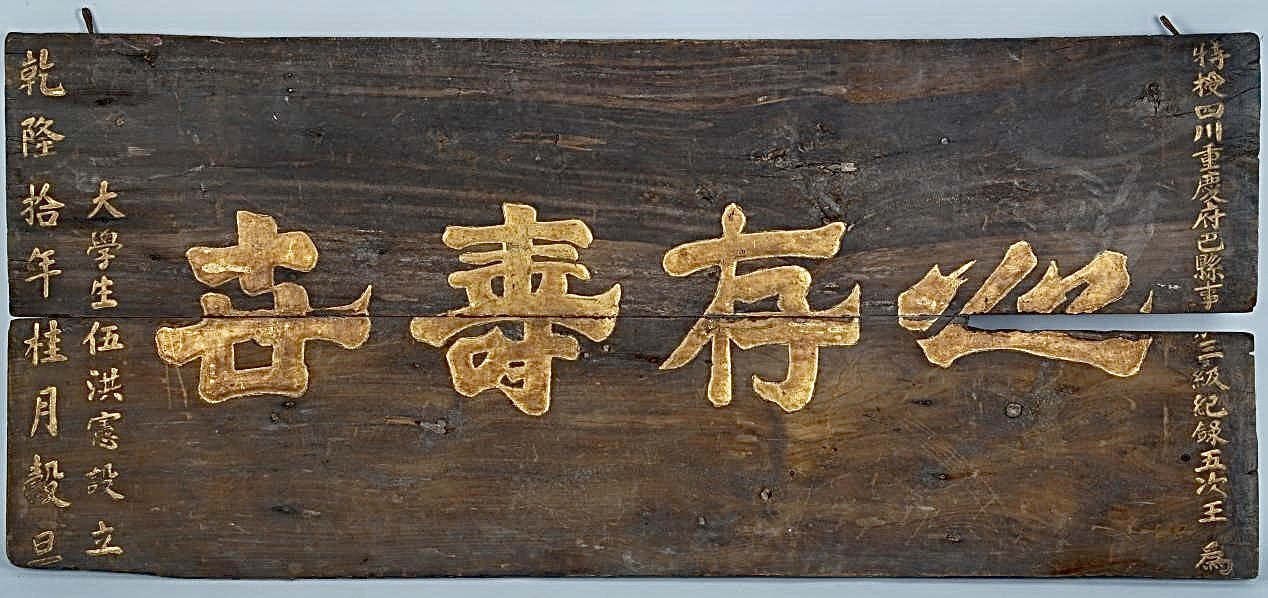 特授四川重慶府巴縣事
三級紀錄五次王 為
心存壽世
大學生伍洪憲設立
乾隆拾年桂月穀旦